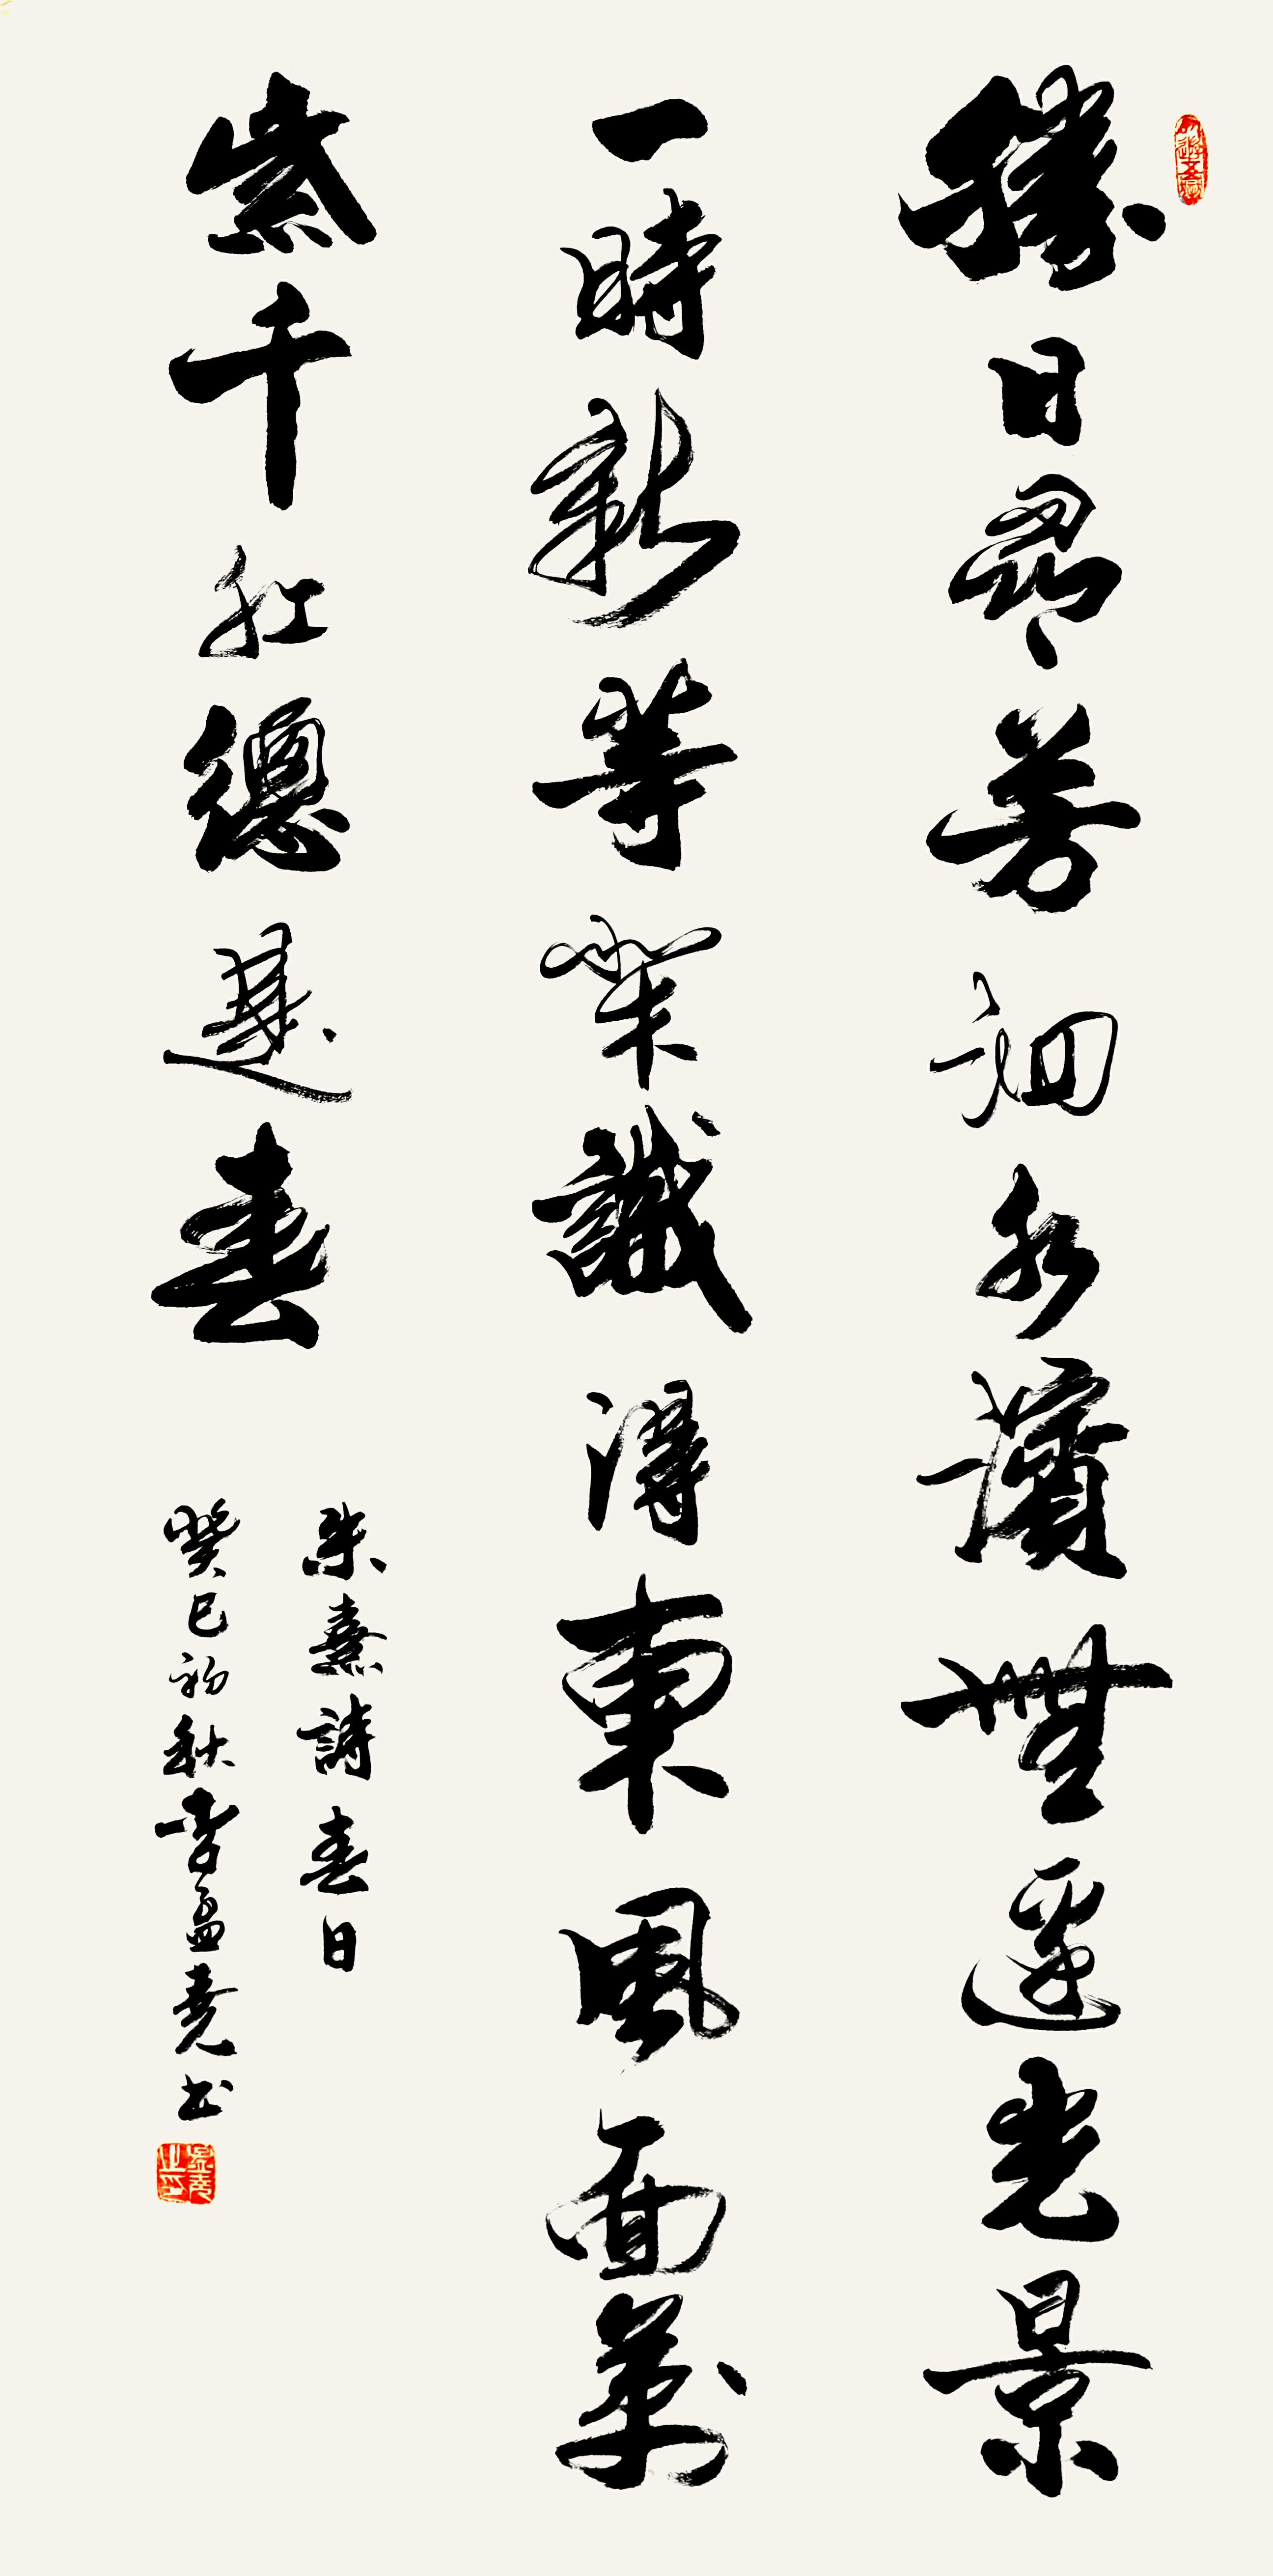 勝日尋芳泗水濱無邊光景
一時新等閑識得東風面萬
紫千紅總是春
朱熹詩春日
癸巳初秋李孟堯书
孟堯之印